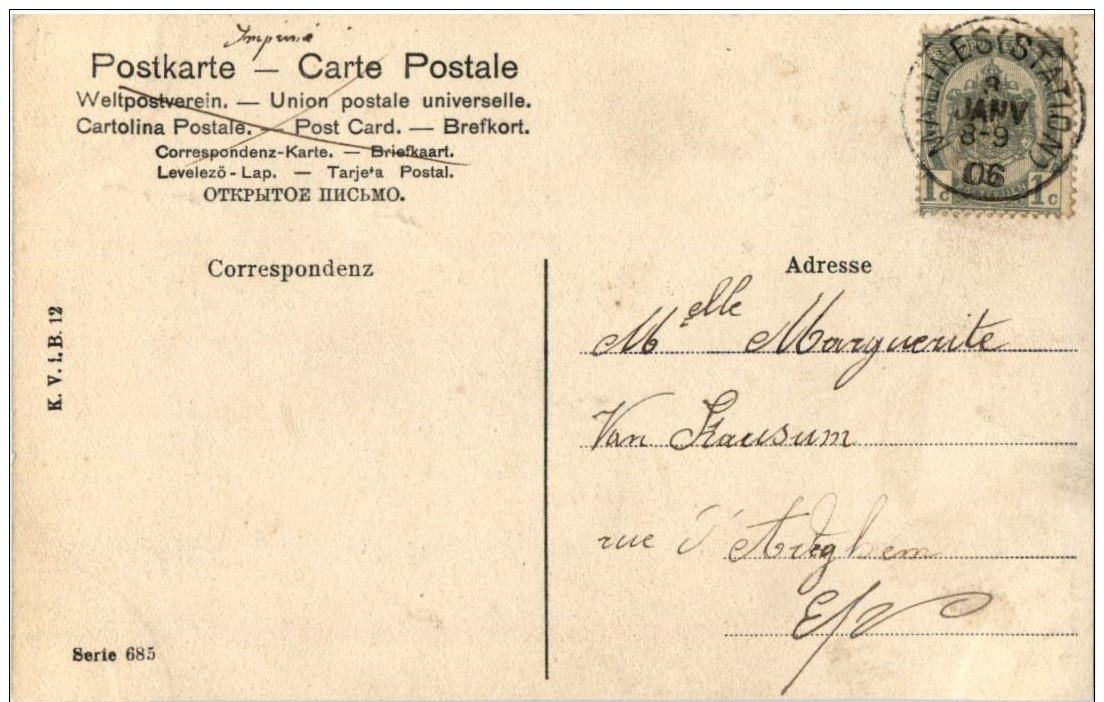 Imprimé
Postkarte — Carte Postale
Weltpostverein. — Union postale universelle.
Cartolina Postale. — Post Card. — Brefkort.
Correspondenz-Karte. — Briefkaart.
Levelező-Lap. — Tarjeta Postal.
ОТКРЫТОЕ ПИСЬМО.
MALINES (STATION)
3
JANV
8-9
06
1c 1c
Correspondenz
Adresse
Melle Marguerite
Van
rue d'
E/V
K. V. i. B. 12
Serie 685